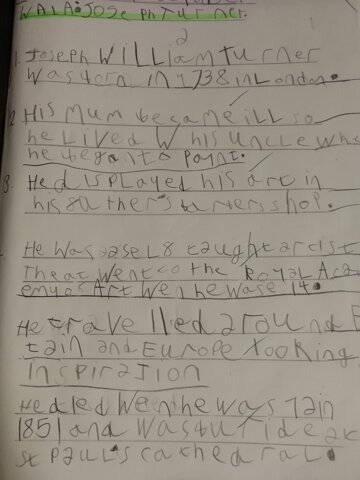 WALA: JOSEPH TURNER.
2
1. Joseph WILLiam turner
was born in 1738 in London.
2 His mum became ill so
he Lived W his uncle who
he began to paint.
3. He displayed his art in
his father's barters shop.
He was a seL8 taught artist
Theat went to the Royal Aca
emy of Art when he wase 14.
He travelled around B
tain and Europe looking
inspiration
He died wen he was Tain
1851 and was
st paul's cathedral.